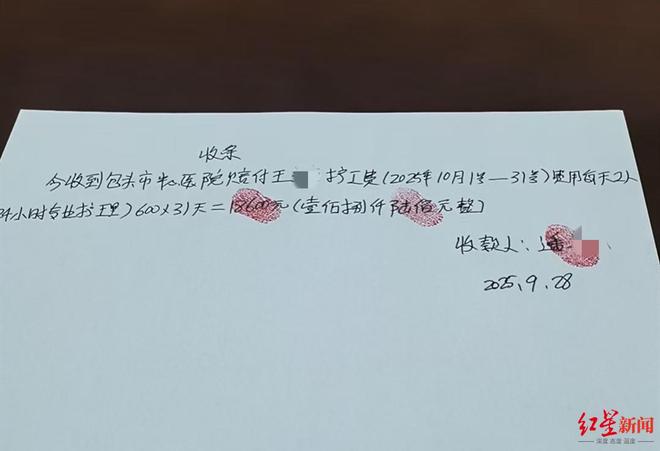 收条
今收到包头市中心医院赔付王 护工费(2025年10月1号—31号)费用每天2人
24小时专业护理)600×31天=18600元(壹佰捌仟陆佰元整)
收款人:潘
2025.9.28
红星新闻
深度 态度 温度